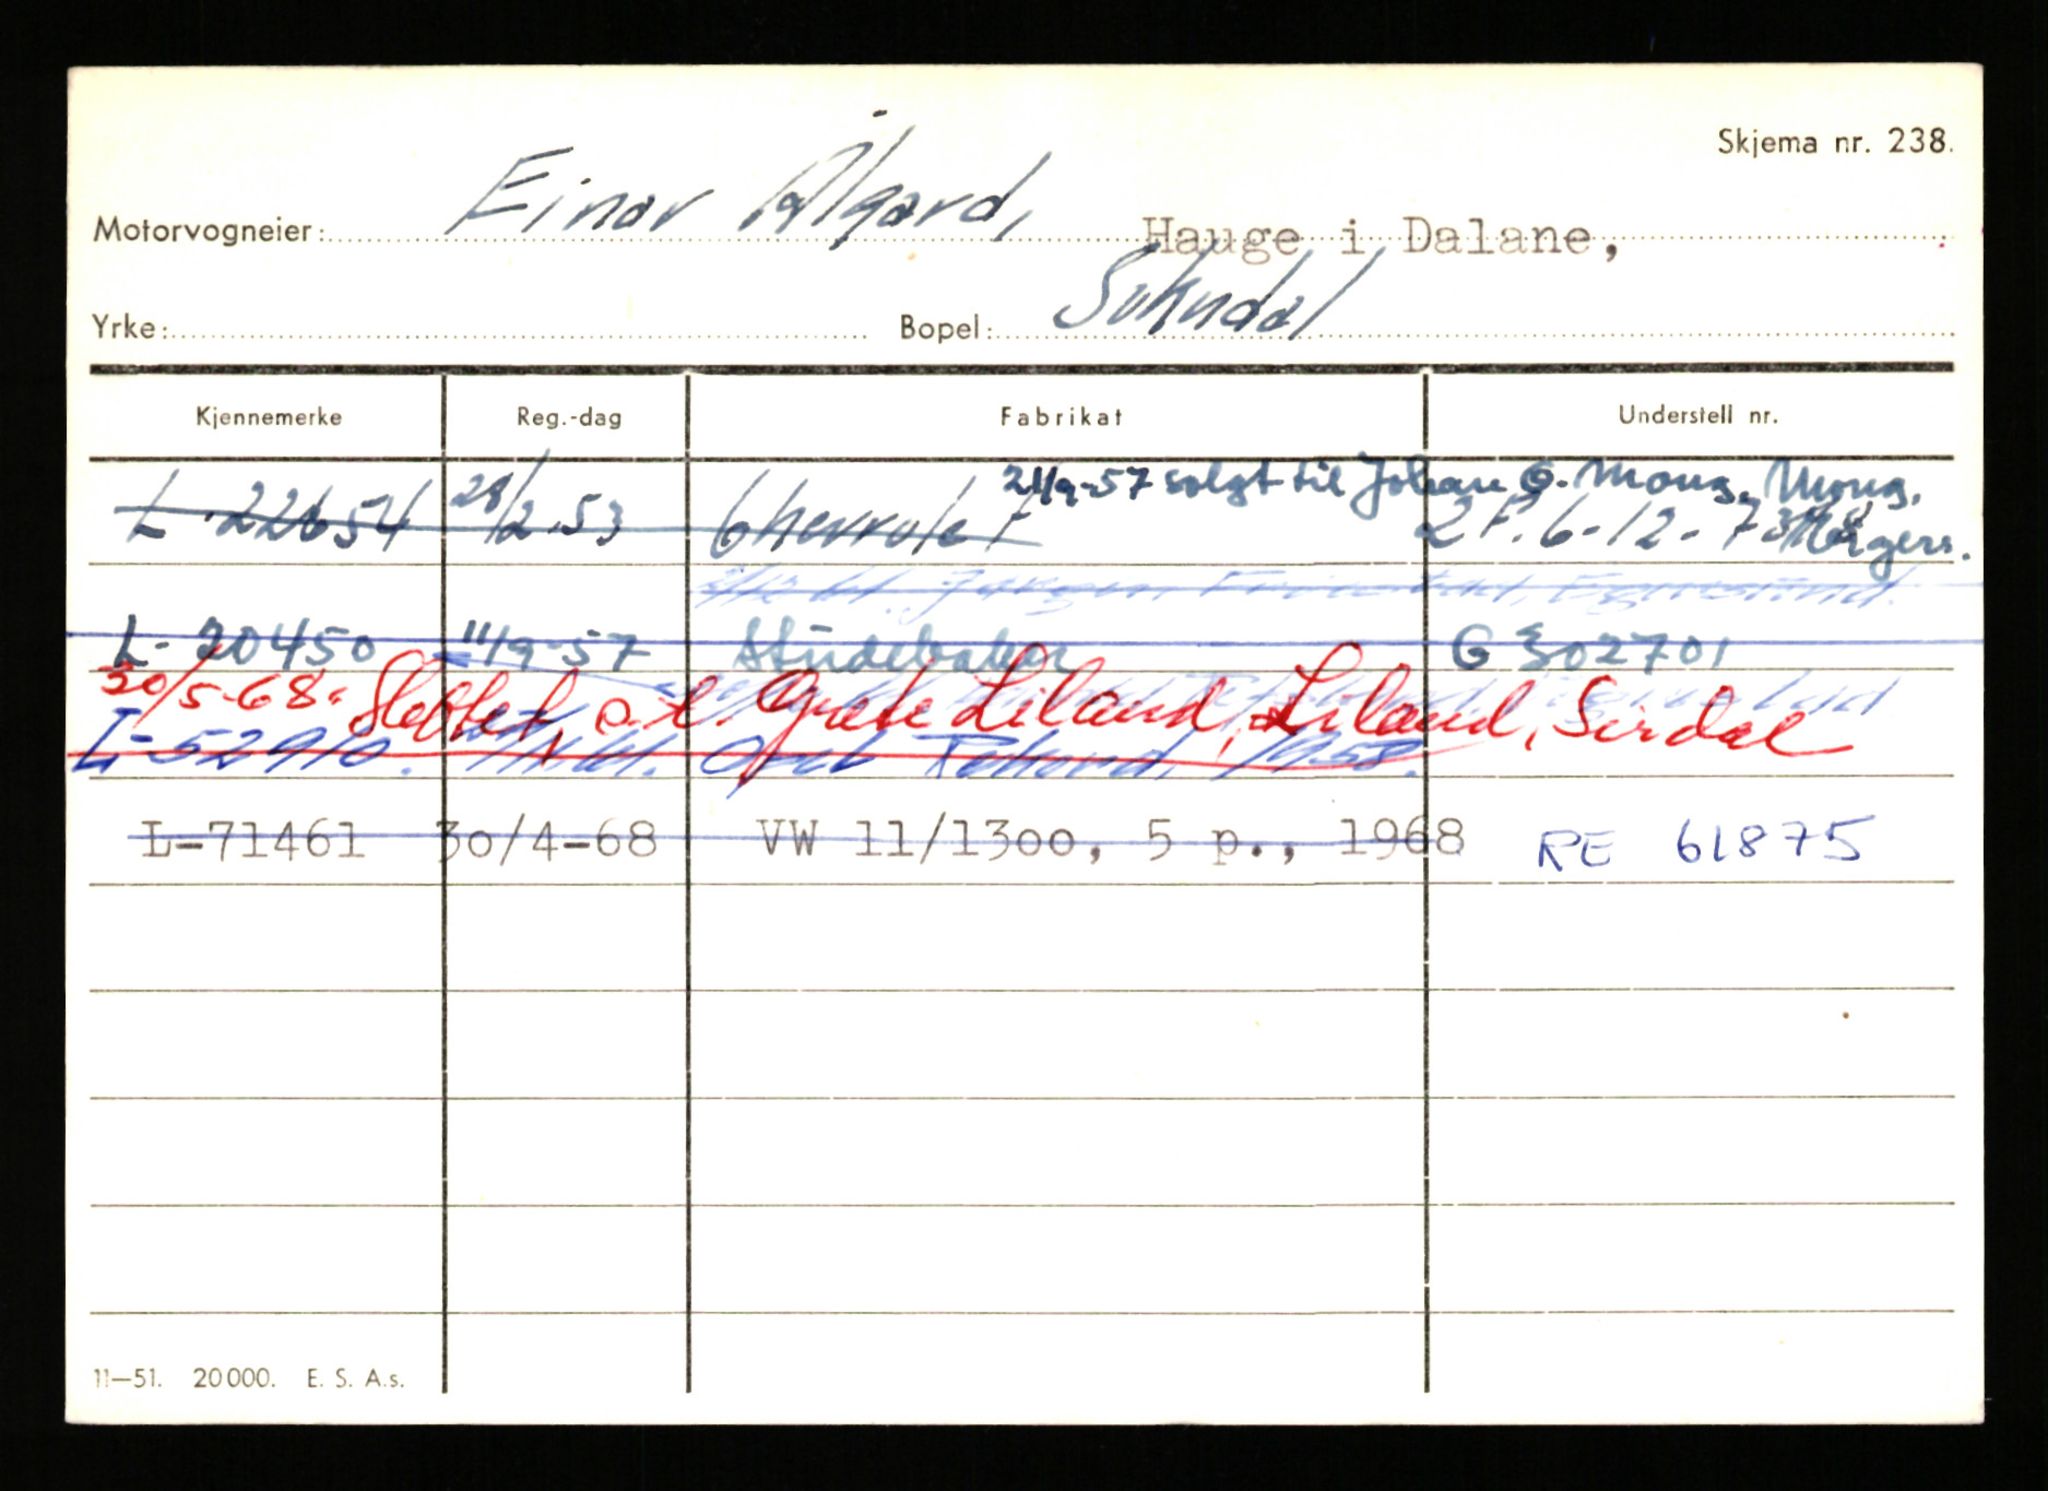 Skjema nr. 238.
Motorvogneier: Einar Ålgård, Hauge i Dalane,
Yrke: Bopel: Sokndal
Kjennemerke Reg.-dag Fabrikat Understell nr.
21/9-57 solgt til Johan G. Mong, Mong,
L-22654 28/2.53 Chevrolet 2 F.6-12-
L-20450 11/9-57 Studebaker G 302701
30/5-68. Slettet, o.t. Grete Liland, Liland, Sirdal
L-52910. Opel Rekord, 1958.
L-71461 30/4-68 VW 11/1300, 5 p., 1968 RE 61875
11—51. 20000. E. S. A.s.